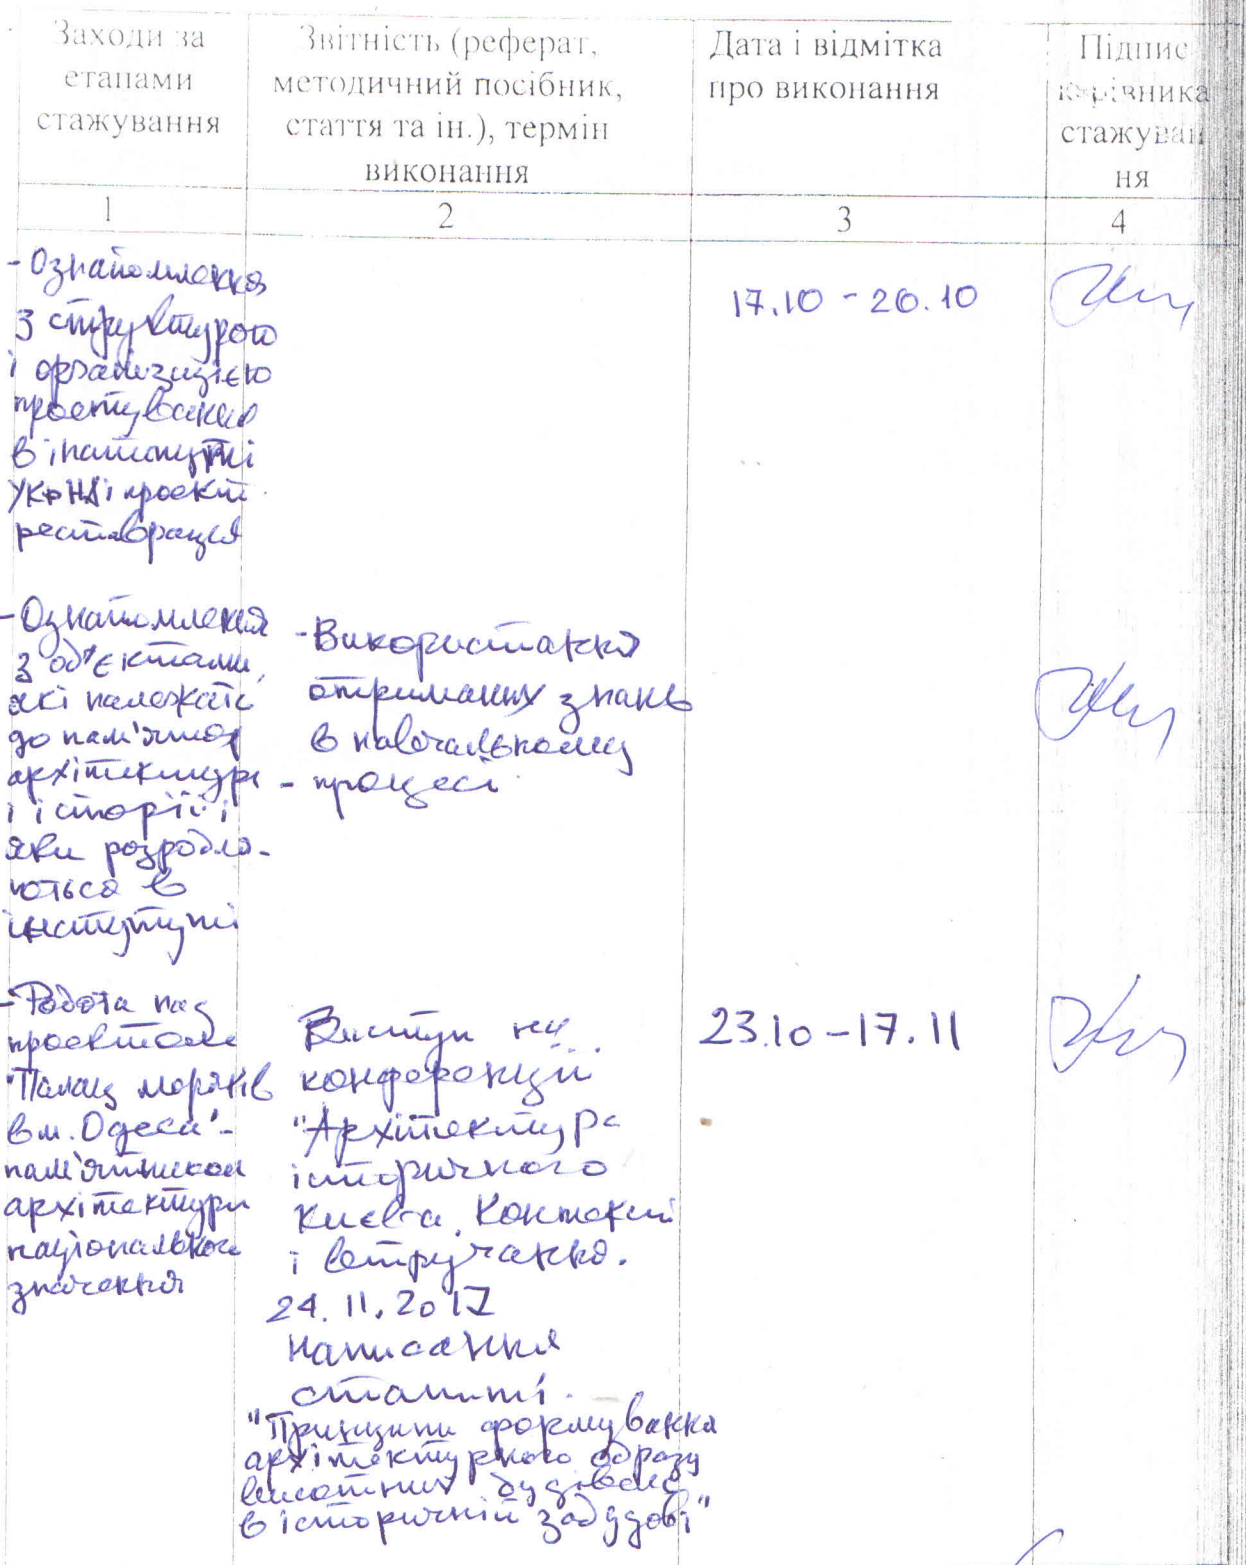 Заходи за
етапами
стажування
Звітність (реферат,
методичний посібник,
стаття та ін.), термін
виконання
Дата і відмітка
про виконання
Підпис
керівника
стажуван
ня
1
2
3
4
- Ознайомлення
з структурою
і організацією
проектування
в інституті
УкрНДІ проект
реставрація
17.10 - 20.10
- Ознайомлення
з об'єктами,
які належать
до пам'яток
архітектури
і історії і
яки розробля-
ються в
інституті
- Використання
отриманих знань
в навчальному
- процесі
- Робота над
проектом
"Палац моряків
в м. Одеси" -
пам'ятником
архітектури
національного
значення
Виступ на
конференції
"Архітектура
історичного
Києва. Контекст
і втручання.
24.11.2017
Написання
статті.
"Принципи формування
архітектурного образу
висотних будівель
в історичній забудові"
23.10 - 17.11